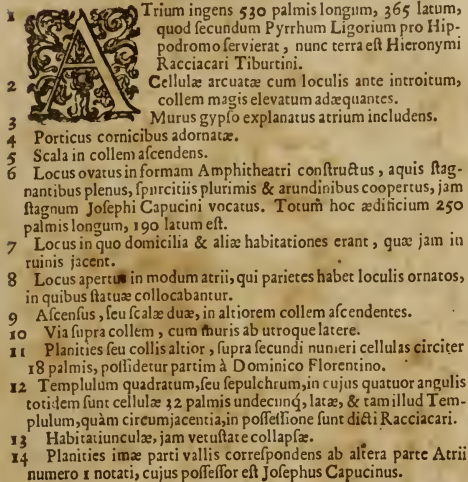 1 ATrium ingens 530 palmis longum, 365 latum,
quod secundum Pyrrhum Ligorium pro Hip-
podromo servierat, nunc terra est Hieronymi
Racciacari Tiburtini.
2 Cellulæ arcuatæ cum loculis ante introitum,
collem magis elevatum adæquantes.
3 Murus gypso explanatus atrium includens.
4 Porticus cornicibus adornatæ.
5 Scala in collem ascendens.
6 Locus ovatus in formam Amphitheatri constructus, aquis stag-
nantibus plenus, spurcitiis plurimis & arundinibus coopertus, jam
stagnum Josephi Capucini vocatus. Totum̃ hoc ædificium 250
palmis longum, 190 latum est.
7 Locus in quo domicilia & aliæ habitationes erant, quæ jam in
ruinis jacent.
8 Locus apertus in modum atrii, qui parietes habet loculis ornatos,
in quibus statuæ collocabantur.
9 Ascensus, seu scalæ duæ, in altiorem collem ascendentes.
10 Via supra collem, cum muris ab utroque latere.
11 Planities seu collis altior, supra secundi numeri cellulas circiter
18 palmis, possidetur partim à Dominico Florentino.
12 Templulum quadratum, seu sepulchrum, in cujus quatuor angulis
totidem sunt cellulæ 32 palmis undecunq; latæ, & tam illud Tem-
plulum, quàm circumjacentia, in possessione sunt dicti Racciacari.
13 Habitatiunculæ, jam vetustate collapsæ.
14 Planities imæ parti vallis correspondens ab altera parte Atrii
numero 1 notati, cujus possessor est Josephus Capucinus.